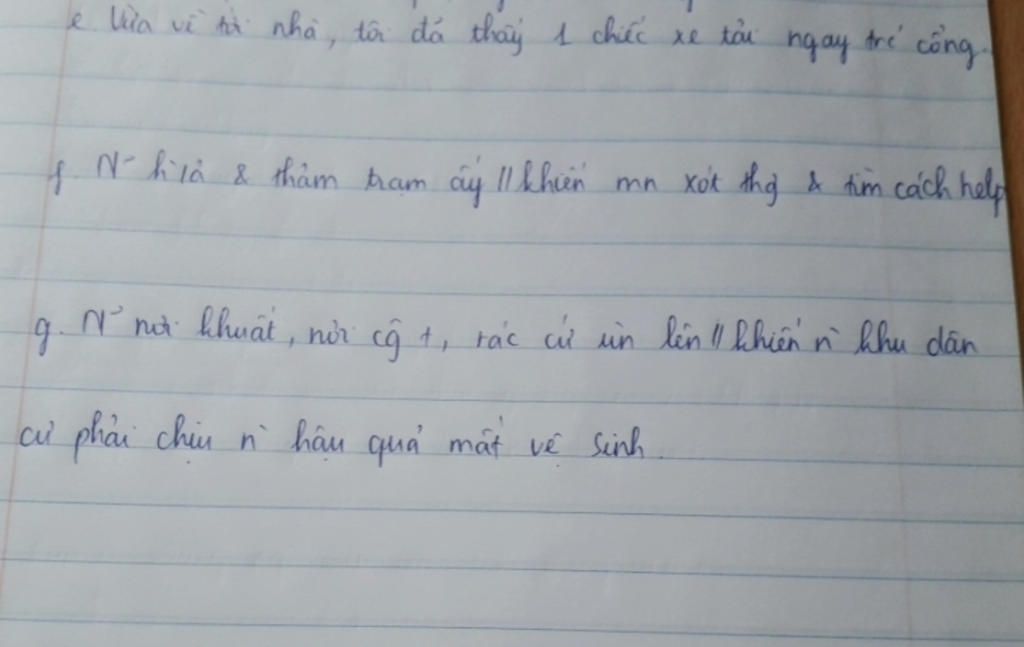 e Vừa về tới nhà, tôi đã thấy 1 chiếc xe tải ngay trc' cổng.
f. N~ h`lả & thảm trạm ấy // khiến mn xót thg & tìm cách help
g. N~ nơi khuất, nơi cộ +, rác cứ ùn lên // khiến n` khu dân
cư phải chịu n` hậu quả mất vệ sinh.